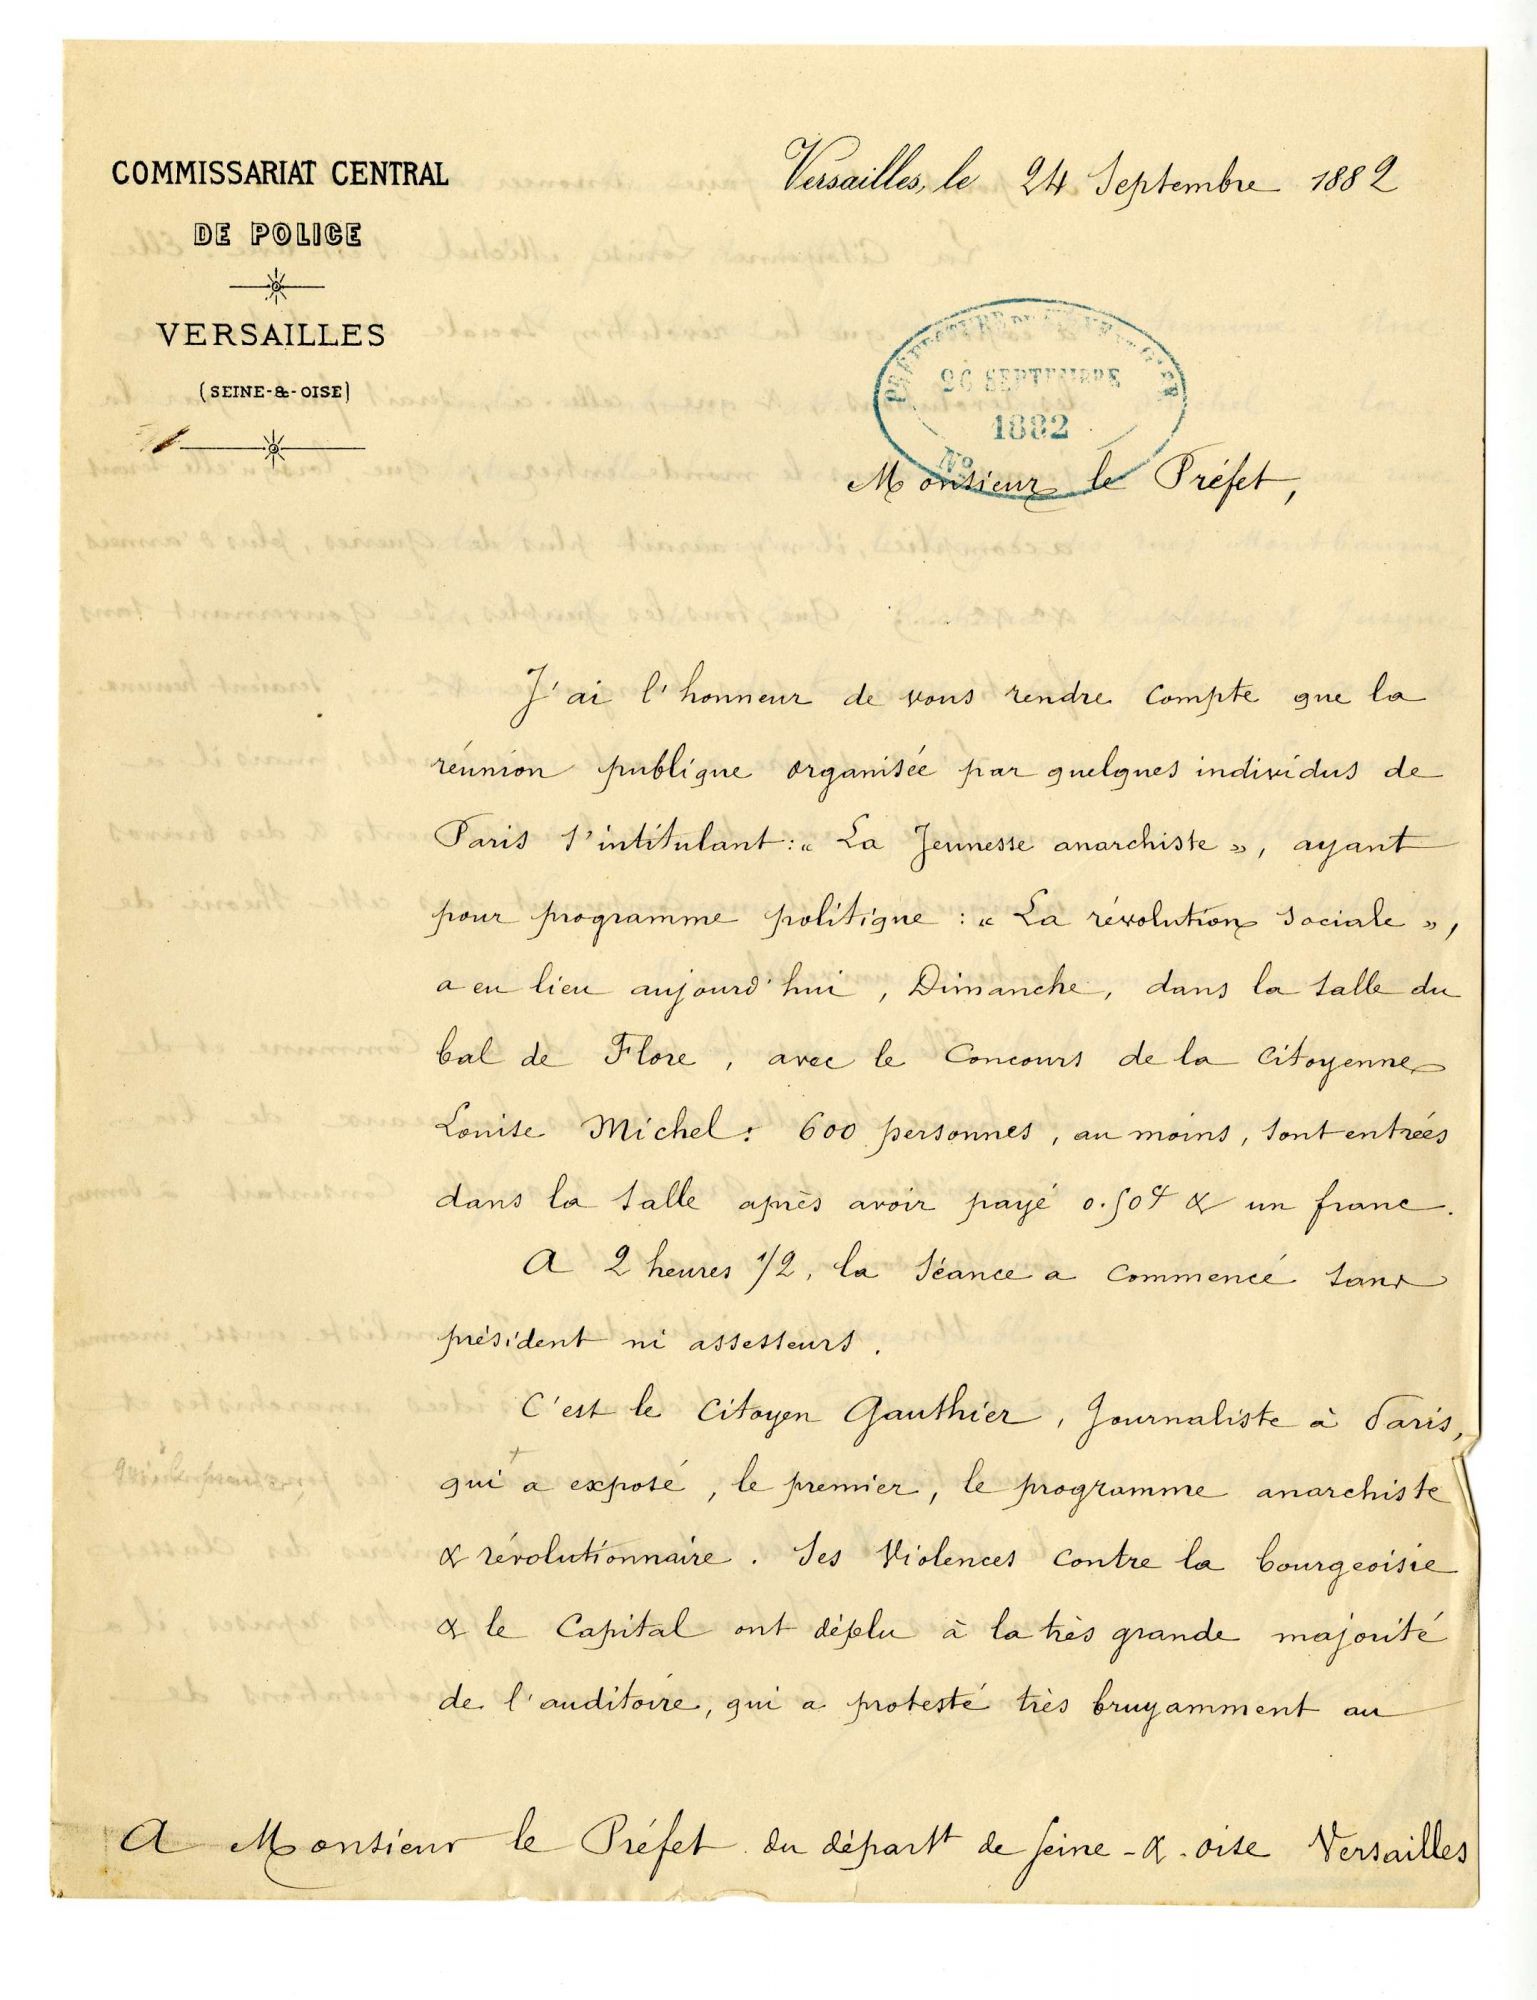 COMMISSARIAT CENTRAL
DE POLICE
VERSAILLES
(SEINE-&-OISE)
Versailles, le 24 Septembre 1882
26 SEPTEMBRE
1882
No
Monsieur le Préfet,
J'ai l'honneur de vous rendre compte que la
réunion publique organisée par quelques individus de
Paris s'intitulant : « La Jeunesse anarchiste », ayant
pour programme politique : « La révolution sociale »,
a eu lieu aujourd'hui, Dimanche, dans la salle du
bal de Flore, avec le concours de la citoyenne
Louise Michel : 600 personnes, au moins, sont entrées
dans la salle après avoir payé 0.50c & un franc.
A 2 heures 1/2, la séance a commencé sans
président ni assesseurs.
C'est le citoyen Gauthier, journaliste à Paris,
qui a exposé, le premier, le programme anarchiste
& révolutionnaire. Ses violences contre la bourgeoisie
& le Capital ont déplu à la très grande majorité
de l'auditoire, qui a protesté très bruyamment au
A Monsieur le Préfet du départt de Seine-&-Oise Versailles